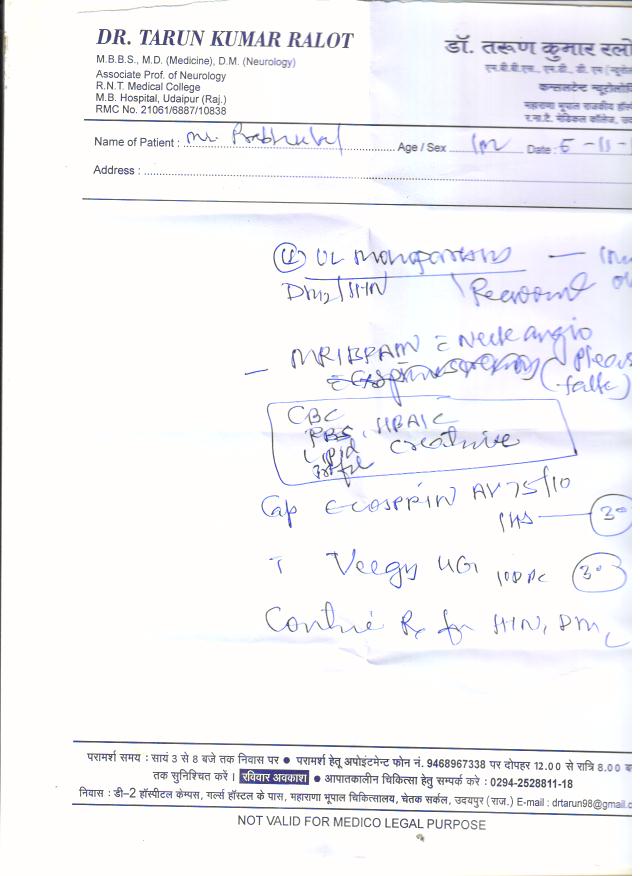 DR. TARUN KUMAR RALOT
M.B.B.S., M.D. (Medicine), D.M. (Neurology)
Associate Prof. of Neurology
R.N.T. Medical College
M.B. Hospital, Udaipur (Raj.)
RMC No. 21061/6887/10838
डॉ. तरूण कुमार रलो
एम.बी.बी.एस., एम.डी., डी. एम (न्यूरो
कन्सलटेन्ट न्यूरोलोजि
महाराणा भूपाल राजकीय हॉस्
र.ना.टे. मेडिकल कॉलेज, उद
Name of Patient : Mr. Prabhulal Age / Sex M Date : 5-11-
Address :
UL monoparesis
DM2/HTN
MRI BRAIN Neck angio
CBC
RBS, HBA1C
Lipid Creatinine
Cap ECOSPRIN AV 75/10
1HS 30
T 30
Continue Rx for HTN, DM2
परामर्श समय : सायं 3 से 8 बजे तक निवास पर ● परामर्श हेतू अपोइंटमेन्ट फोन नं. 9468967338 पर दोपहर 12.00 से रात्रि 8.00 ब
तक सुनिश्चित करें । रविवार अवकाश ● आपातकालीन चिकित्सा हेतु सम्पर्क करे : 0294-2528811-18
निवास : डी-2 हॉस्पीटल केम्पस, गर्ल्स हॉस्टल के पास, महाराणा भूपाल चिकित्सालय, चेतक सर्कल, उदयपुर (राज.) E-mail : drtarun98@gmail.c
NOT VALID FOR MEDICO LEGAL PURPOSE